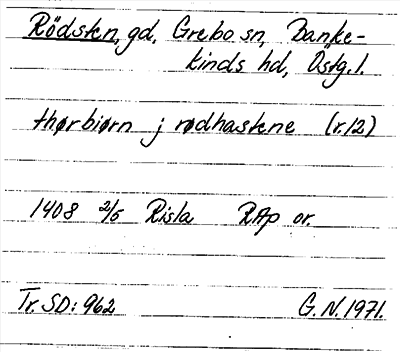 Rödsten, gd, Grebo sn, Banke-
kinds hd, Östg. l.
thørbiørn j rødhastene (r. 12)
1408 2/5 Risla RAp or.
Tr. SD: 962 G. N. 1971.